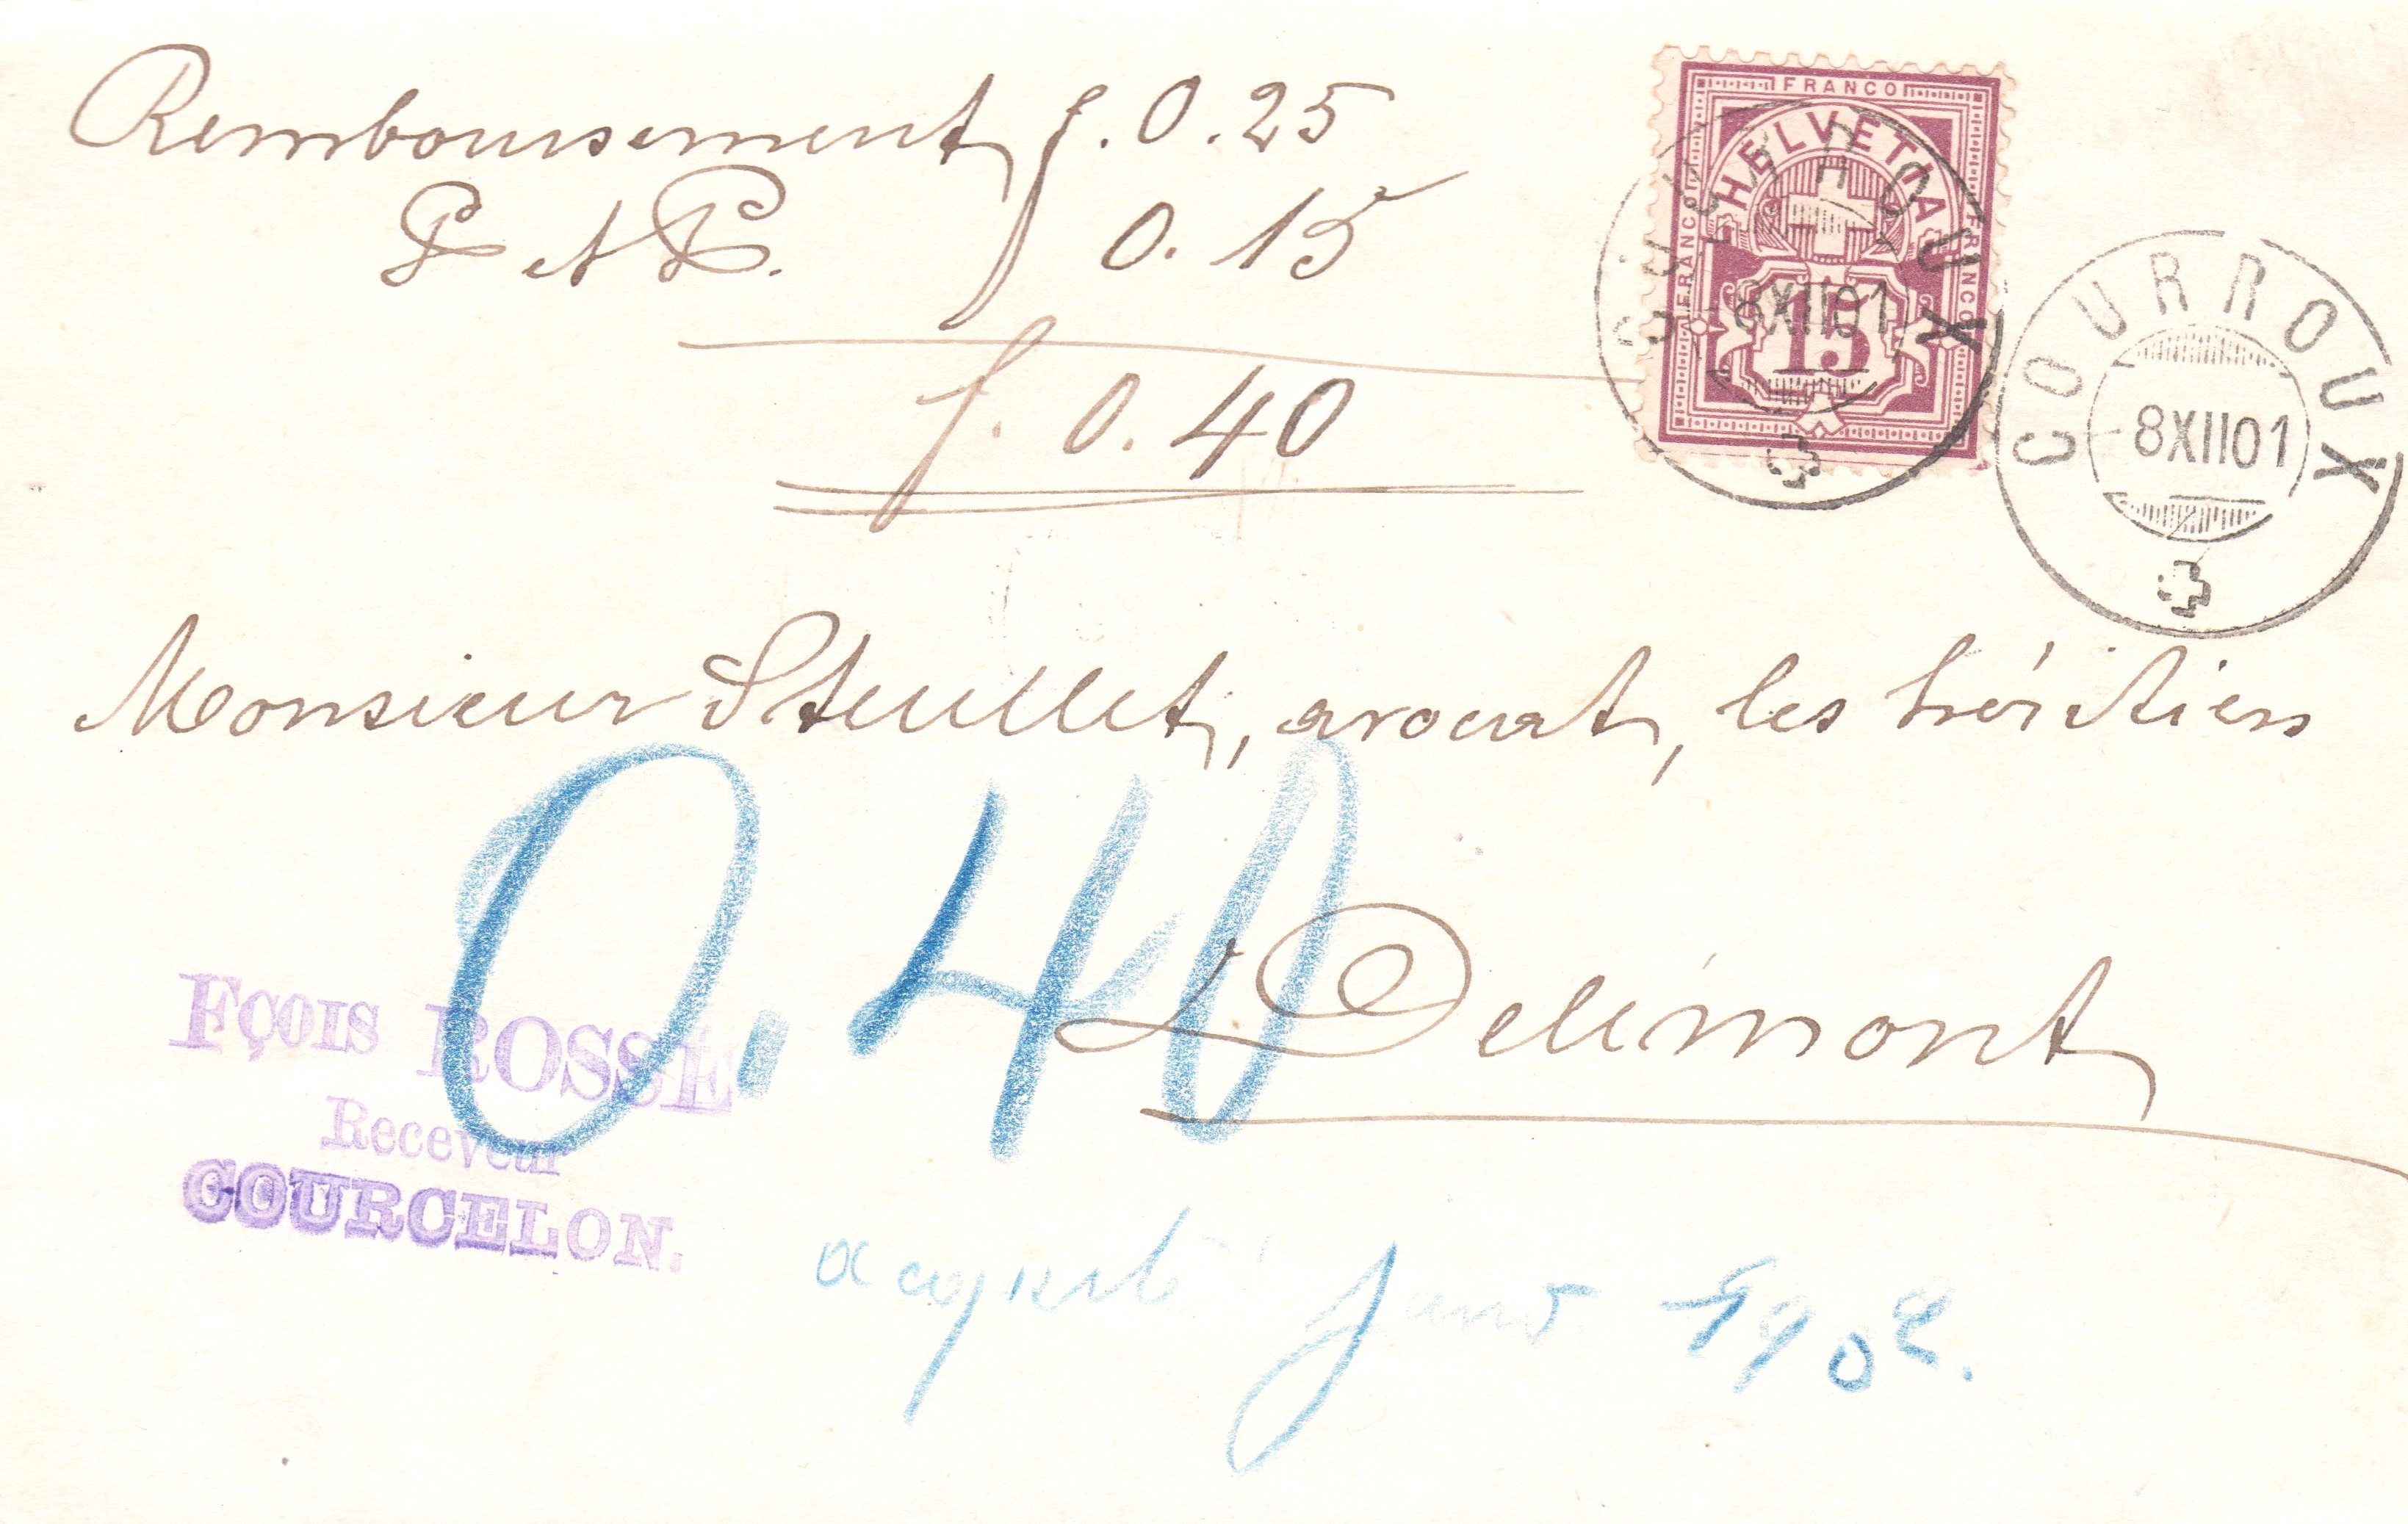 Remboursement f. 0.25
P et P. 0.15
f. 0.40
FRANCO
HELVETIA
FRANCO
FRANCO
15
COURROUX
8XII01
COURROUX
8XII01
Monsieur Steullet, avocat, les héritiers
0.40
Delémont
Fçois ROSSÉ
Receveur
COURCELON.
acquité Janv. 1902.